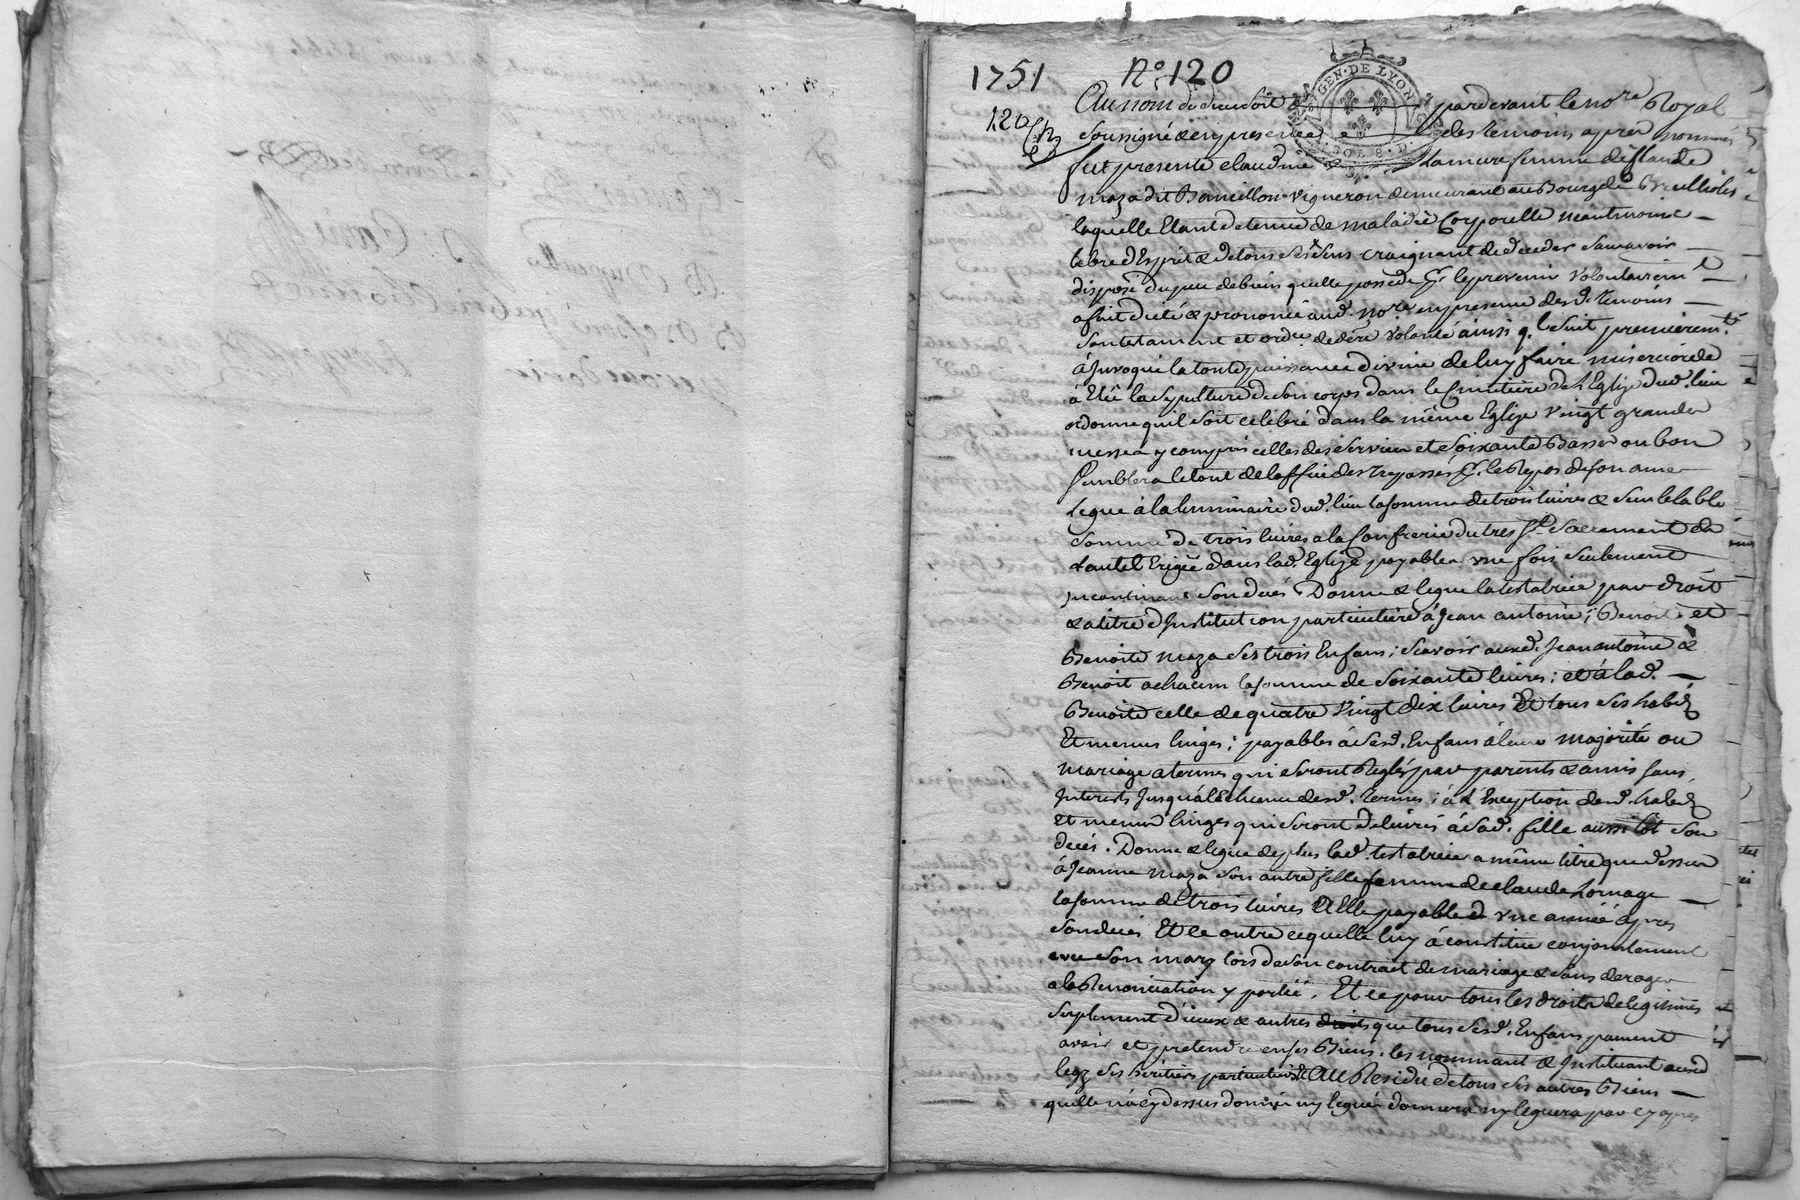 1751 N° 120
120
GEN. DE LYON
SOLS. D
Au nom de dieu soit pardevant le no.re Royal
soussigné & en presence des temoins apres nommés
fut presente claudine Lamure femme de Claude
maza dit vigneron demeurant au Bourg de Brullioles
laquelle Etant detenue de maladie Corporelle neantmoins
libre d'Esprit & de tous ses sens craignant de deceder sans avoir
disposé du peu de biens quelle possede p.r le prevenir volontairem.t
a fait dicté & prononcé aud. no.re en presence desd. temoins
son testament et ordre de dere volonté ainsi q.l suit premierem.t
à Invoqué la toute puissance divine de luy faire misericorde
à Elû la sepulture de son corps dans le Cimitiere de l'Eglise dud. lieu
ordonne quil soit celebré dans la même Eglise vingt grandes
messes y compris celles des services et soixante Basses ou bon
semblera le tout de l'office des trepassés p.r le Repos de son ame
Legue à la luminaire dud. lieu la somme de trois livres & semblable
somme de trois livres a la Confrerie du tres S.t Sacrement de
l'autel Erigée dans lad. Eglise payables une fois seulement
incontinant son decés Donne & legue la testatrice par droit
& a titre d'Institution particuliere à Jean antoine ; Benoit et
Benoite maza ses trois Enfans ; scavoir auxd. Jean antoine &
Benoit a chacun la somme de soixante livres ; et à lad.
Benoite celle de quatre vingt dix livres & tous ses habits
Et menus linges ; payables à sesd. Enfans à leur majorité ou
mariage a termes qui seront Reglés par parents & amis sans
Interests Jusqu'à l'Echeance desd. termes ; à l'Exception desd. habits
et menus linges qui seront delivrés à sad. fille aussitôt son
decés. Donne & legue de plus lad. testatrice a même titre que dessus
à Jeanne maza son autre fille femme de claude
la somme de trois livres à Elle payable une année apres
son decés Et ce outre ce quelle luy à constitué conjointement
avec son mary lors de son contrait de mariage & sans deroger
a la Renonciation y portée. Et ce pour tous les droits de legitimes
suplement d'iceux & autres droits que tous sesd. Enfans pouvent
avoir et pretendre en ses Biens. les nommant & Instituant auxd
legz ses heritiers particuliers & Au Residu de tous ses autres Biens
quelle n'a cy dessus donné ny legué donnera ny leguera par cy apres